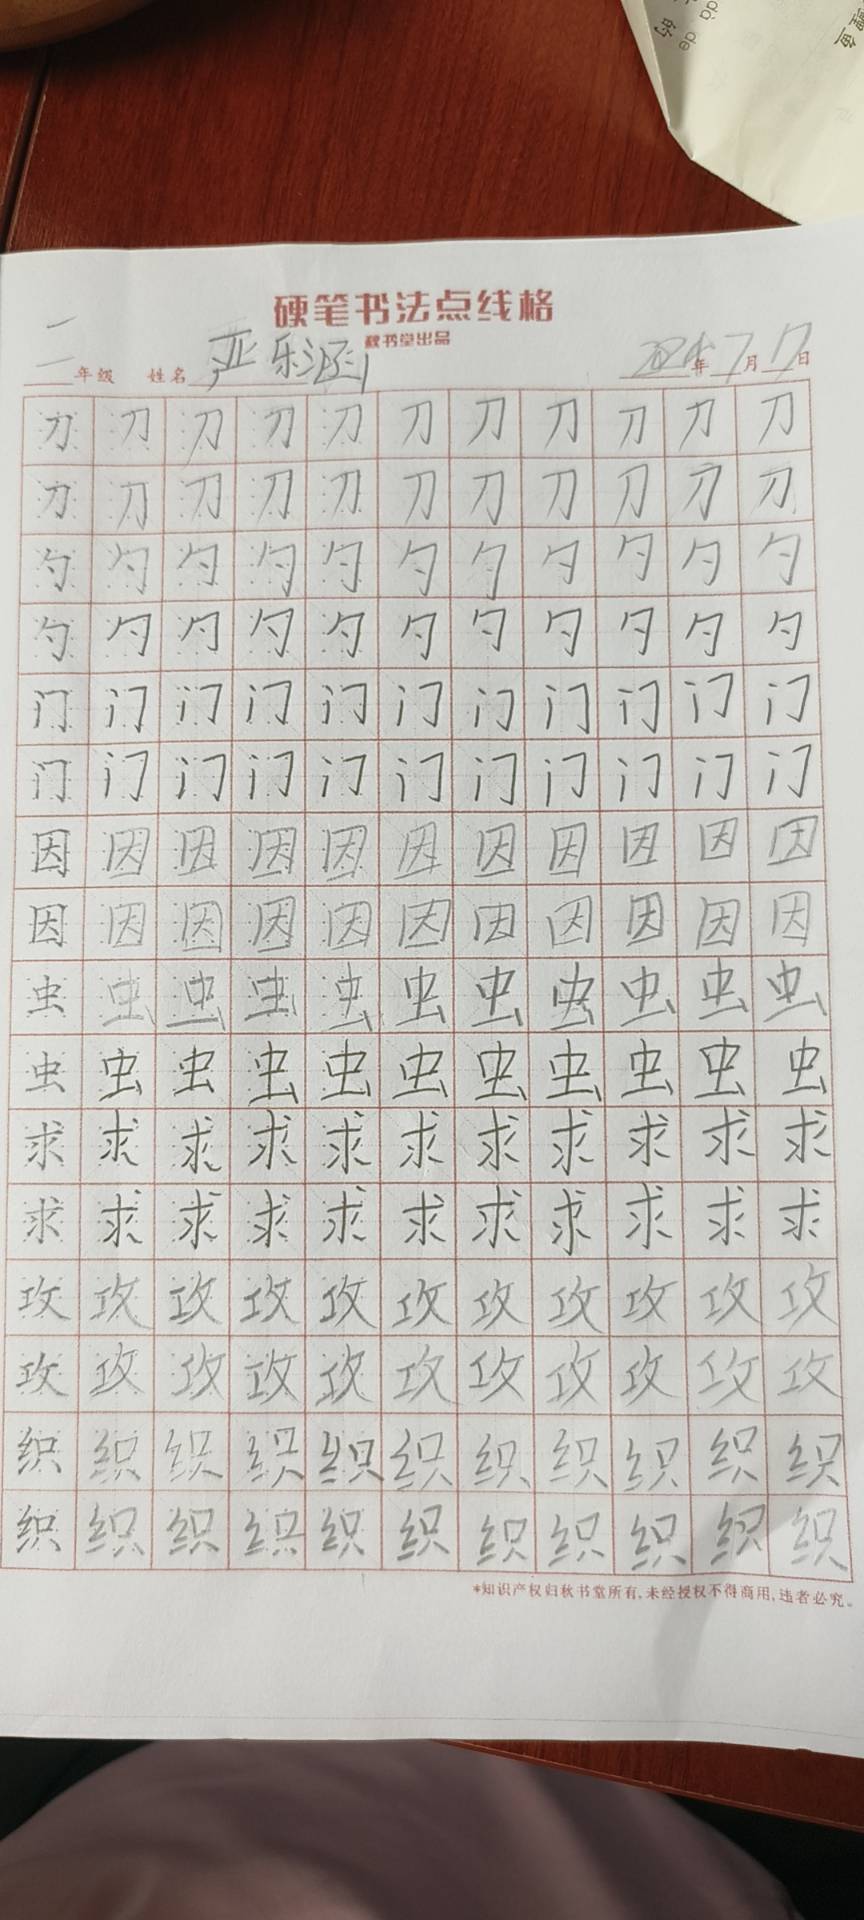 dà de
的
鲤鱼
硬笔书法点线格
秋书堂出品
二年级 姓名严乐涵 年7月17日
刀刀刀刀刀刀刀刀刀刀刀
刀刀刀刀刀刀刀刀刀刀刀
勺勺勺勺勺勺勺勺勺勺勺
勺勺勺勺勺勺勺勺勺勺勺
门门门门门门门门门门门
门门门门门门门门门门门
因因因因因因因因因因因
因因因因因因因因因因因
虫虫虫虫虫虫虫虫虫虫虫
虫虫虫虫虫虫虫虫虫虫虫
求求求求求求求求求求求
求求求求求求求求求求求
攻攻攻攻攻攻攻攻攻攻攻
攻攻攻攻攻攻攻攻攻攻攻
织织织织织织织织织织织
织织织织织织织织织织织
*知识产权归秋书堂所有,未经授权不得商用,违者必究。